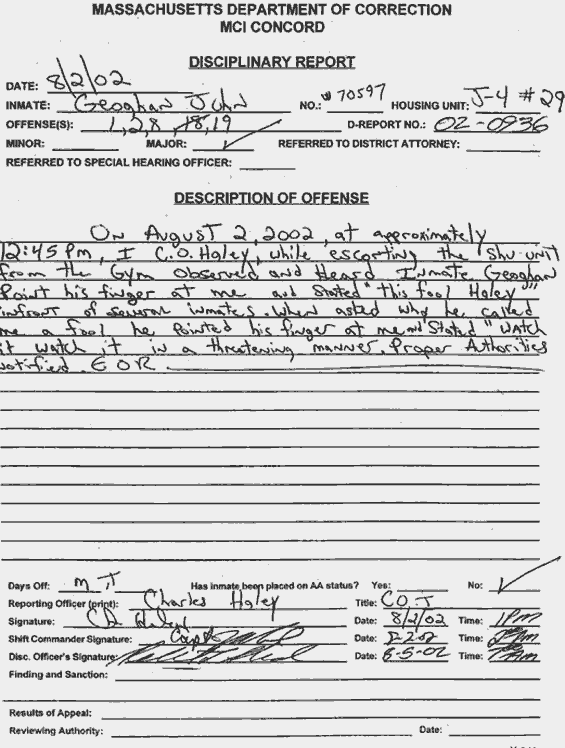 MASSACHUSETTS DEPARTMENT OF CORRECTION
MCI CONCORD
DISCIPLINARY REPORT
DATE: 8/2/02
INMATE: Geoghan John NO.: # 70597 HOUSING UNIT: J-4 #29
OFFENSE(S): 1,2,8,18,19 D-REPORT NO.: 02-0936
MINOR: MAJOR: REFERRED TO DISTRICT ATTORNEY:
REFERRED TO SPECIAL HEARING OFFICER:
DESCRIPTION OF OFFENSE
On August 2, 2002, at approximately
12:45 Pm, I C.O. Haley, while escorting the Shu unit
from the Gym Observed and Heard Inmate Geoghan
Point his finger at me and Stated "this fool Haley"
infront of several inmates. When asked why he called
me a fool he Pointed his finger at me and Stated "Watch
it watch it in a threatening manner. Proper Authorities
notified. E O R.
Days Off: M T Has inmate been placed on AA status? Yes: No:
Reporting Officer (print): Charles Haley Title: C.O. I
Signature: Date: 8/2/02 Time: 1PM
Shift Commander Signature: Capt Date: 8-2-02 Time:
Disc. Officer's Signature: Date: 8-5-02 Time: 7am
Finding and Sanction:
Results of Appeal:
Reviewing Authority: Date: